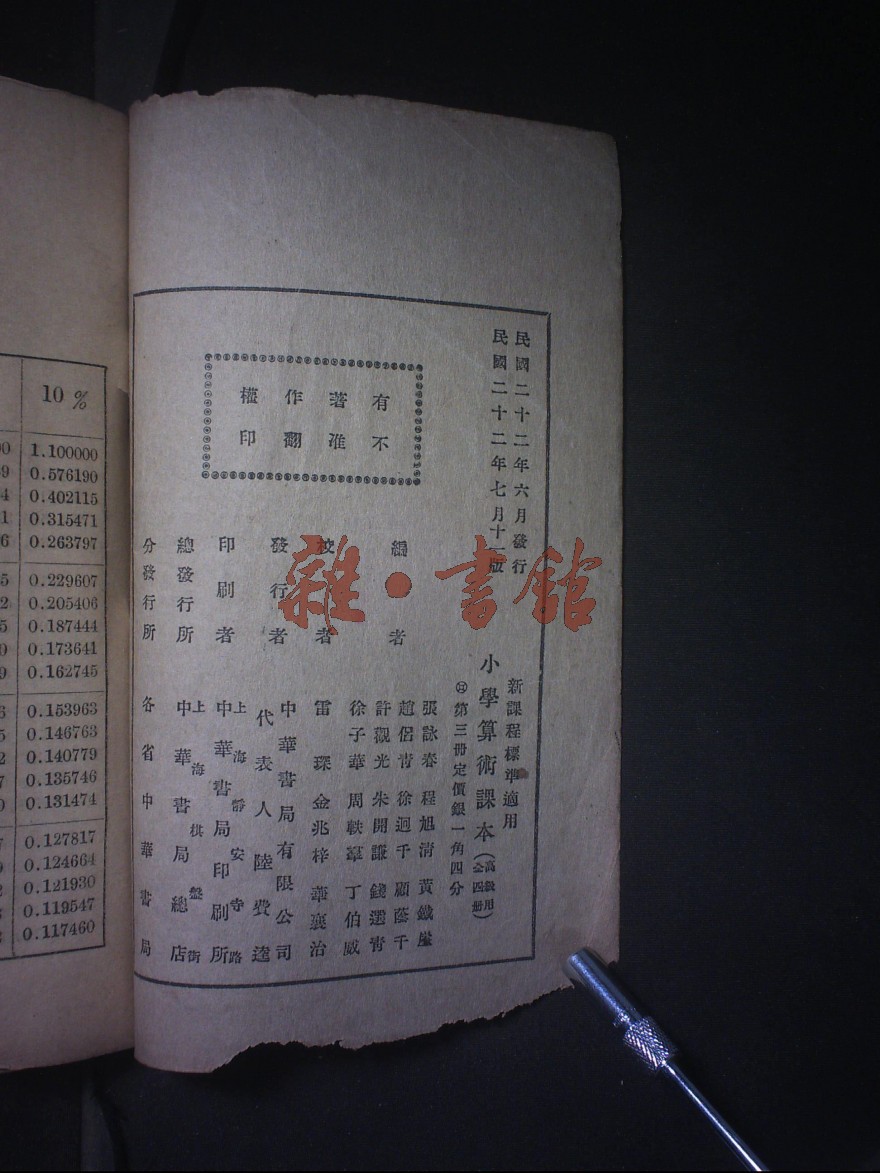 民國二十二年六月發行
民國二十二年七月十一版
新課程標準適用
小學算術課本(高級用 全四冊)
第三冊定價銀一角四分
編者
張詠春 程旭清 黃鐵崖
趙侶青 徐迥千 顧蔭千
許觀光 朱開謙 錢選青
徐子華 周軼羣 丁伯威
校者
雷琛 金兆梓 華襄治
發行者
中華書局有限公司
代表人 陸費逵
印刷者
上海靜安寺路
中華書局印刷所
總發行所
上海棋盤街
中華書局總店
分發行所
各省中華書局
有著作權
不准翻印
雜·書館
10 %
1.100000
0.576190
0.402115
0.315471
0.263797
0.229607
0.205406
0.187444
0.173641
0.162745
0.153963
0.146763
0.140779
0.135746
0.131474
0.127817
0.124664
0.121930
0.119547
0.117460